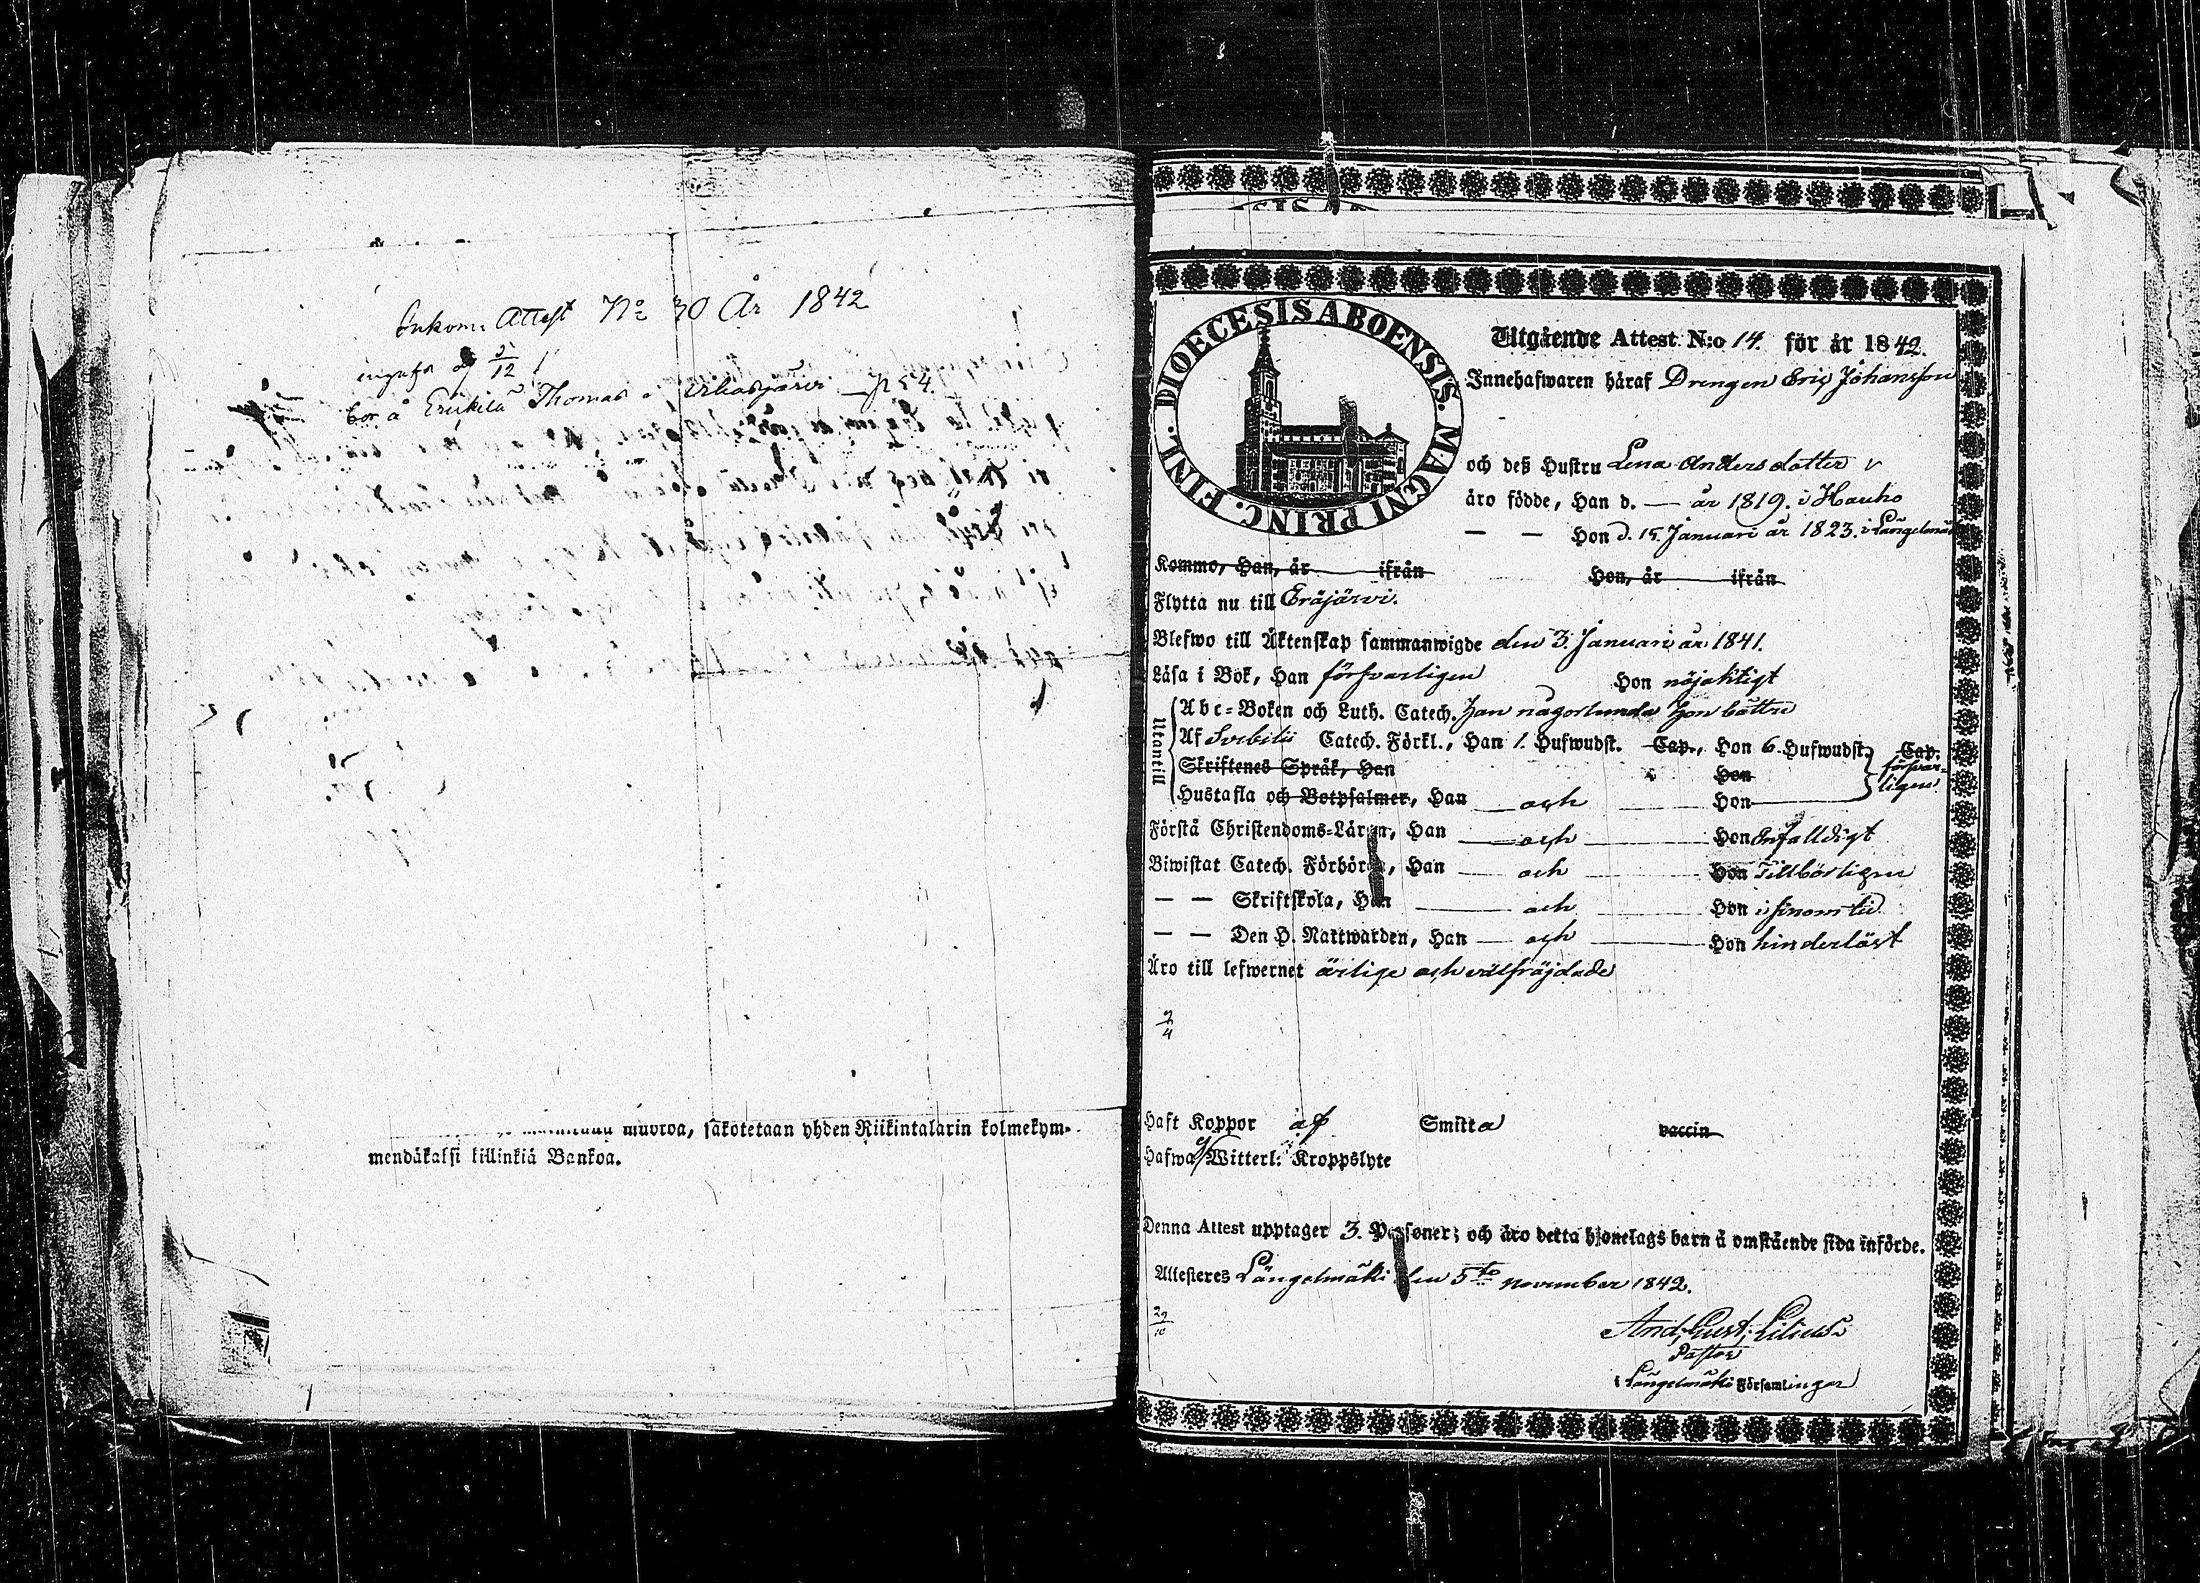 Inkom: Attest No 30 År 1842
5/12
bor å Erickilä Thomas p 54.
muoroa, sakotetaan yhden Riikintalarin kolmekym-
mendäkaksi killinkiä Bankoa.
DIOECESIS ABOENSIS. MAGNI PRINC. FINL.
Utgående Attest N:o 14. för år 1842.
Innehafwaren häraf Drengen Eric Johansson
och deß Hustru Lena Andersdotter
äro födde, Han d. — år 1819. i Hauho
— — Hon d. 15. Januari år 1823. i Längelmä
Kommo, Han, år ifrån Hon, år ifrån
Flytta nu till Eräjärvi.
Blefwo till Äktenskap sammanwigde den 3. Januari år 1841.
Läsa i Bok, Han försvarligen Hon nöjaktigt
Utantill
Abc-Boken och Luth. Catech. Han någorlunda Hon bättre
Af Svebilii Catech. Förkl., Han 1. Hufwudst. Cap., Hon 6 Hufwudst. Cap.
Skriftenes Språk, Han Hon försvar-
ligen
Hustafla och Botpsalmer, Han — och — Hon —
Förstå Christendoms-Läran, Han — och — Hon Enfalldigt
Biwistat Catech. Förhören, Han — och — Hon Tillbörligen
— — Skriftskola, Han — och — Hon i sinom tid
— — Den H. Nattwarden, Han — och — Hon hinderlöst
Äro till lefwernet ärlige och välfräjdade
2/4
Haft Koppor af Smitta vaccin
Hafwa ej Witterl: Kroppslyte
Denna Attest upptager 3. Personer; och äro detta hjonelags barn å omstående sida införde.
Attesteres Längelmäki den 5to November 1842.
29/10
And: Gust: Lilius
Pastor
i Längelmäki Församlingar